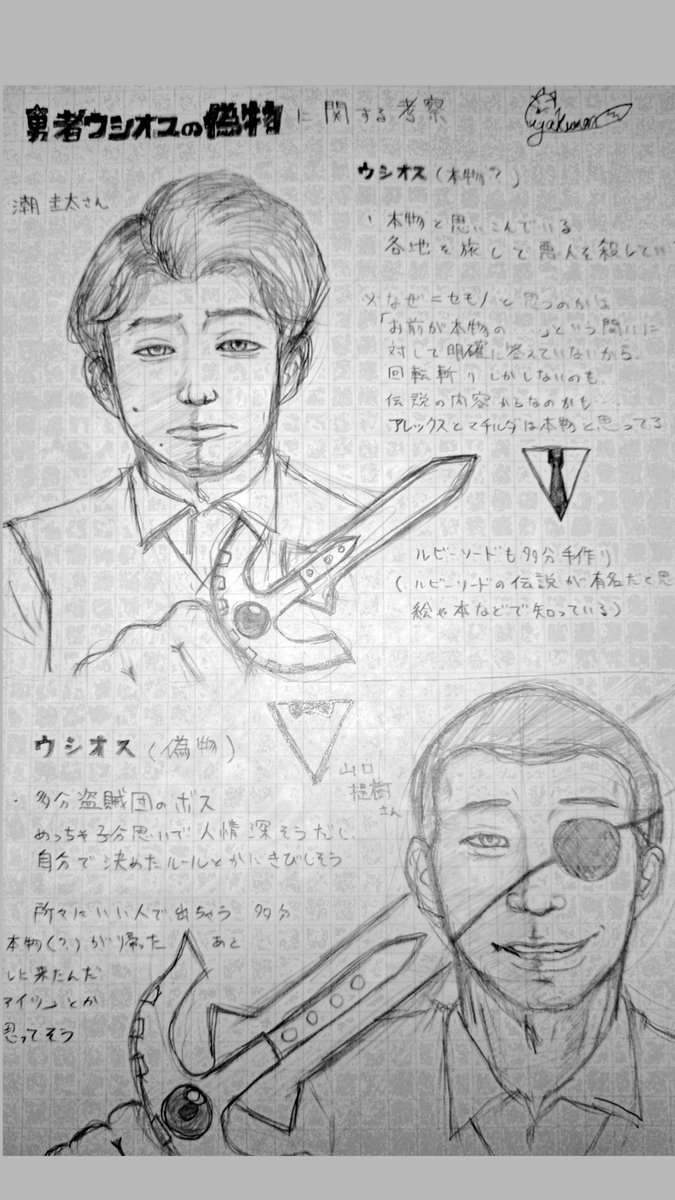 勇者ウシオスの偽物に関する考察
yakuman
潮 圭太さん
ウシオス(本物?)
・本物と思いこんでいる
各地を旅して悪人を殺してい
※なぜニセモノと思うのかは
「お前が本物の……」という問いに
対して明確に答えていないから。
回転斬りしかしないのも、
伝説の内容からなのかも…。
アレックスとマチルダは本物と思ってる
ルビーソードも多分手作り
(ルビーソードの伝説が有名だと思
絵や本などで知っている)
ウシオス(偽物)
・多分盗賊団のボス
めっちゃ子分思いで人情深そうだし、
自分で決めたルールとかにきびしそう
所々にいい人で出ちゃう 多分
本物(?)が帰った あと
しに来たんだ
アイツ」とか
思ってそう
山口
提樹
さん